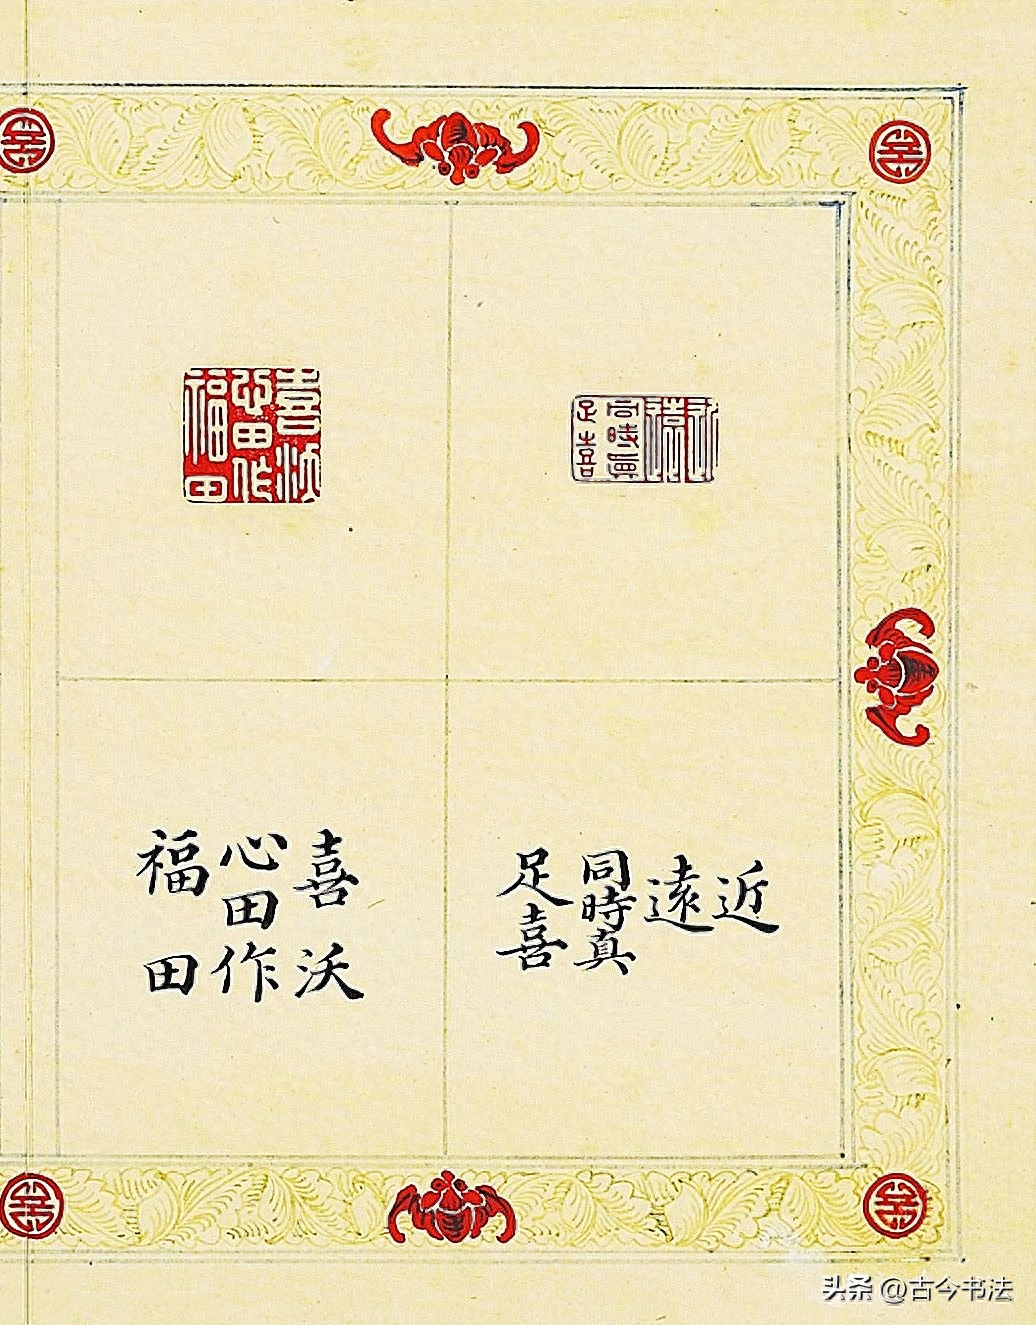 近
遠
同時真
足喜
喜沃
心田作
福田
近
遠
同時真
足喜
喜沃
心田作
福田
头条 @古今书法